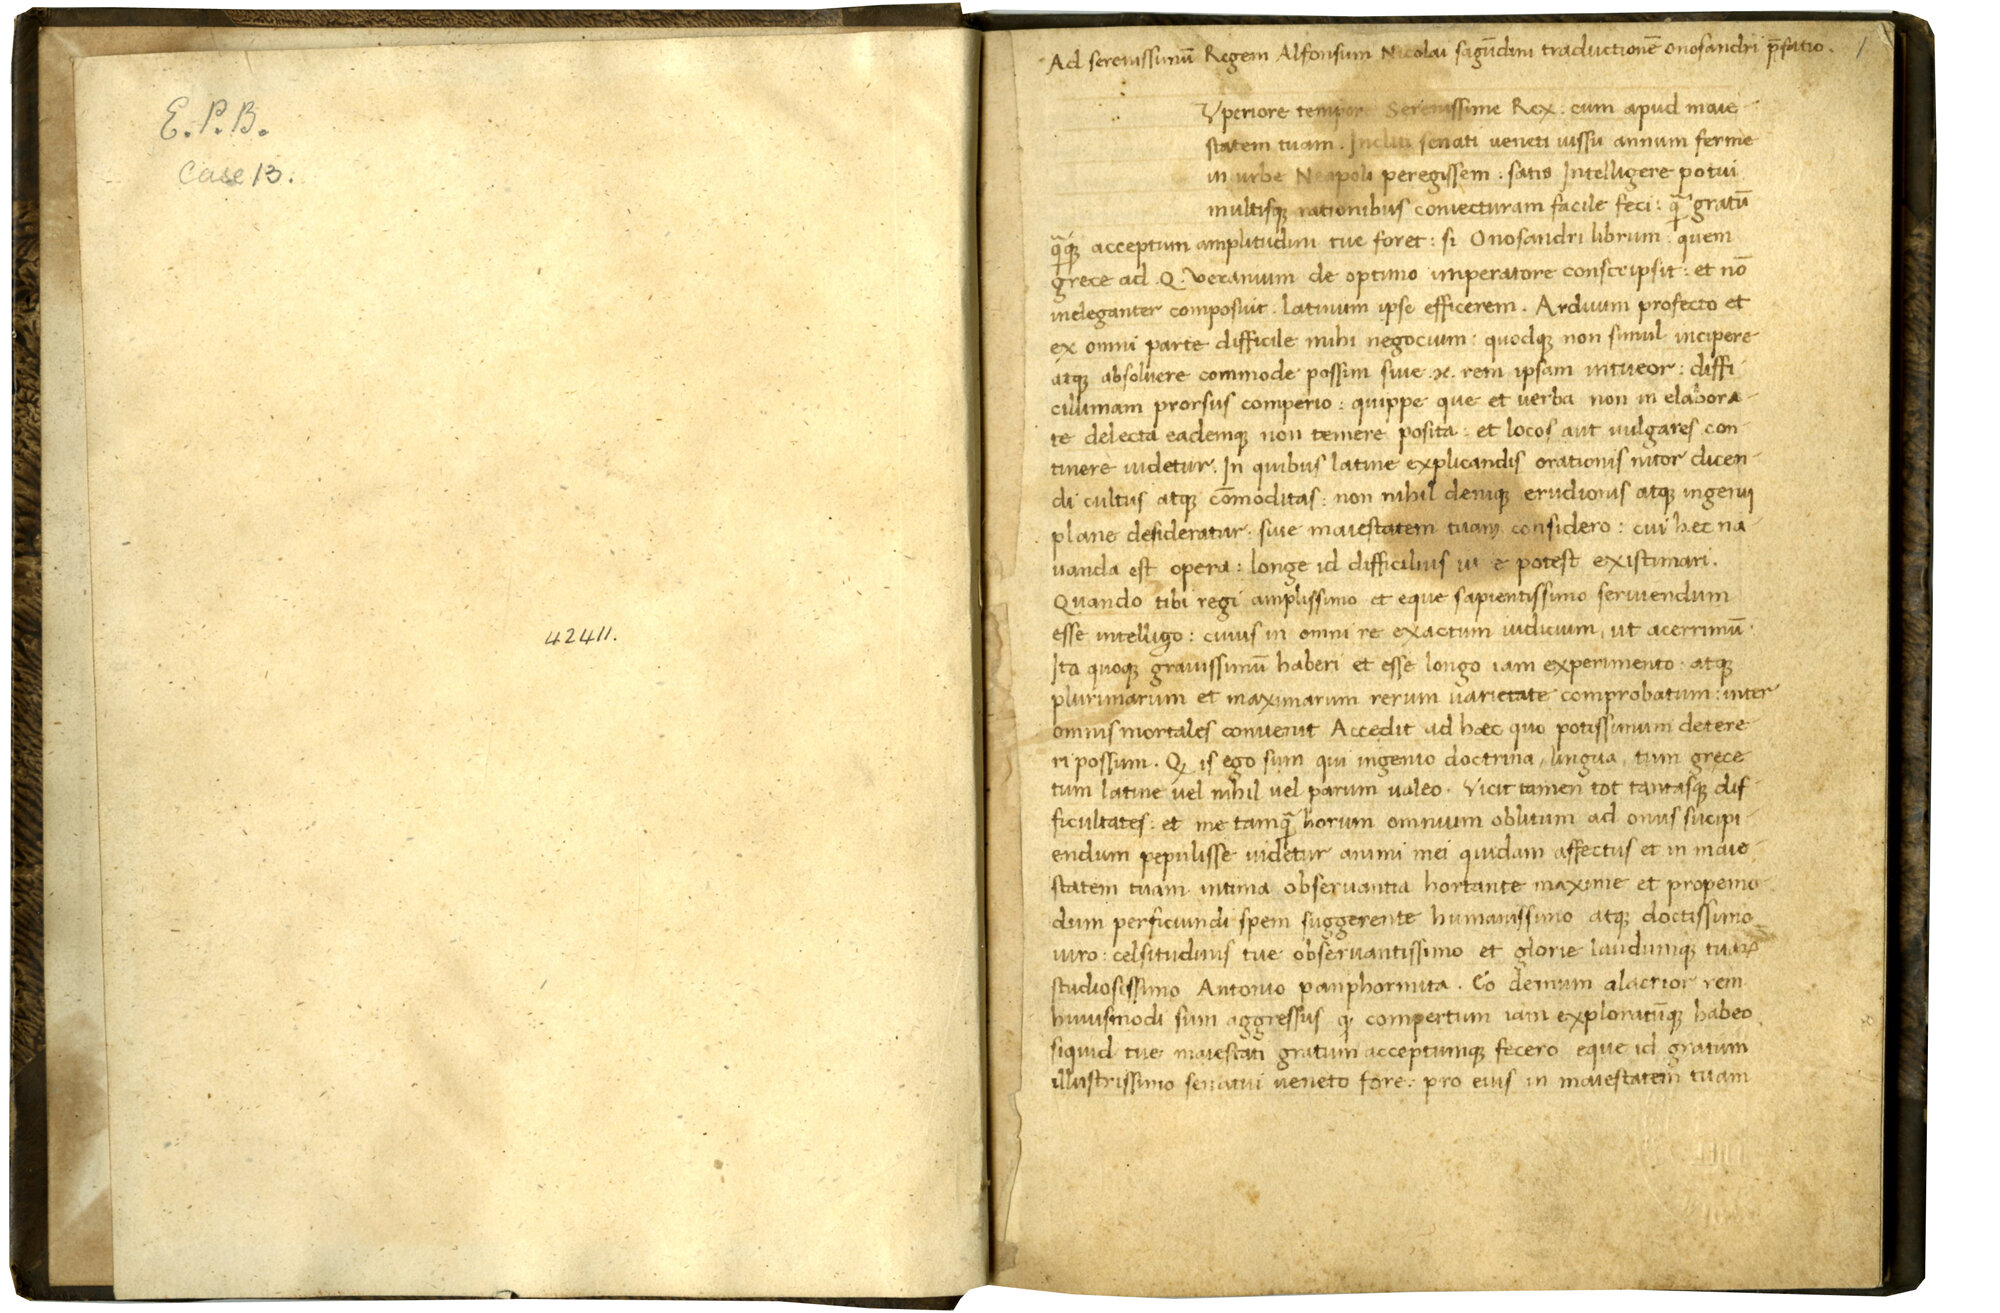 E. P. B.
Case 13.
42411.
Ad serenissimū Regem Alfonsum Nicolai sagūdini traductionē onosandri p̄fatio. 1
Yperiore tempore Serenissime Rex. cum apud maie-
statem tuam. Incliti senati veneti iussu annum ferme
in urbe Neapoli peregissem: satis Intelligere potui
multisq; rationibus coniecturam facile feci: q̄ gratū
q̄q; acceptum amplitudini tue foret: si Onosandri librum. quem
grece ad .Q. veranium de optimo imperatore conscripsit: et nō
ineleganter composuit. latinum ipse efficerem. Arduum profecto et
ex omni parte difficile mihi negocium: quodq; non simul incipere
atq; absoluere commode possim siue .n. rem ipsam intueor: diffi
cillimam prorsus comperio: quippe que et verba non in elabora-
te delecta eademq; non temere posita: et locos aut uulgares con-
tinere uidetur. In quibus latine explicandis orationis nitor dicen-
di cultus atq; cōmoditas: non nihil deniq; erudionis atq; ingenij
plane desideratur. siue maiestatem tuam considero: cui hec na-
uanda est opera: longe id difficilius potest existimari.
Quando tibi regi amplissimo et eque sapientissimo seruiendum
esse intelligo: cuius in omni re exactum iudicium, ut acerrimū.
Ita quoq; grauissimū haberi et esse longo iam experimento. atq;
plurimarum et maximarum rerum uarietate comprobatum: inter
omnis mortales conuenit Accedit ad hæc quo potissimum detere-
ri possum. Q; is ego sum qui ingenio doctrina, lingua, tum grece
tum latine uel nihil uel parum ualeo. Vicit tamen tot tantasq; dif-
ficultates: et me tamq̄ horum omnium oblitum ad onus sucipi-
endum pepulisse uidetur animi mei quidam affectus et in maie-
statem tuam intima obseruantia hortante maxime et propemo-
dum perficiundi spem suggerente humanissimo atq; doctissimo
uiro: celsitudinis tue obseruantissimo et glorie laudumq; tuaꝝ
studiosissimo Antonio panphormita. Eo demum alacrior rem
huiusmodi sum aggressus q; compertum iam exploratūq; habeo
siquid tue maiestati gratum acceptumq; fecero eque id gratum
illustrissimo senatui ueneto fore: pro eius in maiestatem tuam